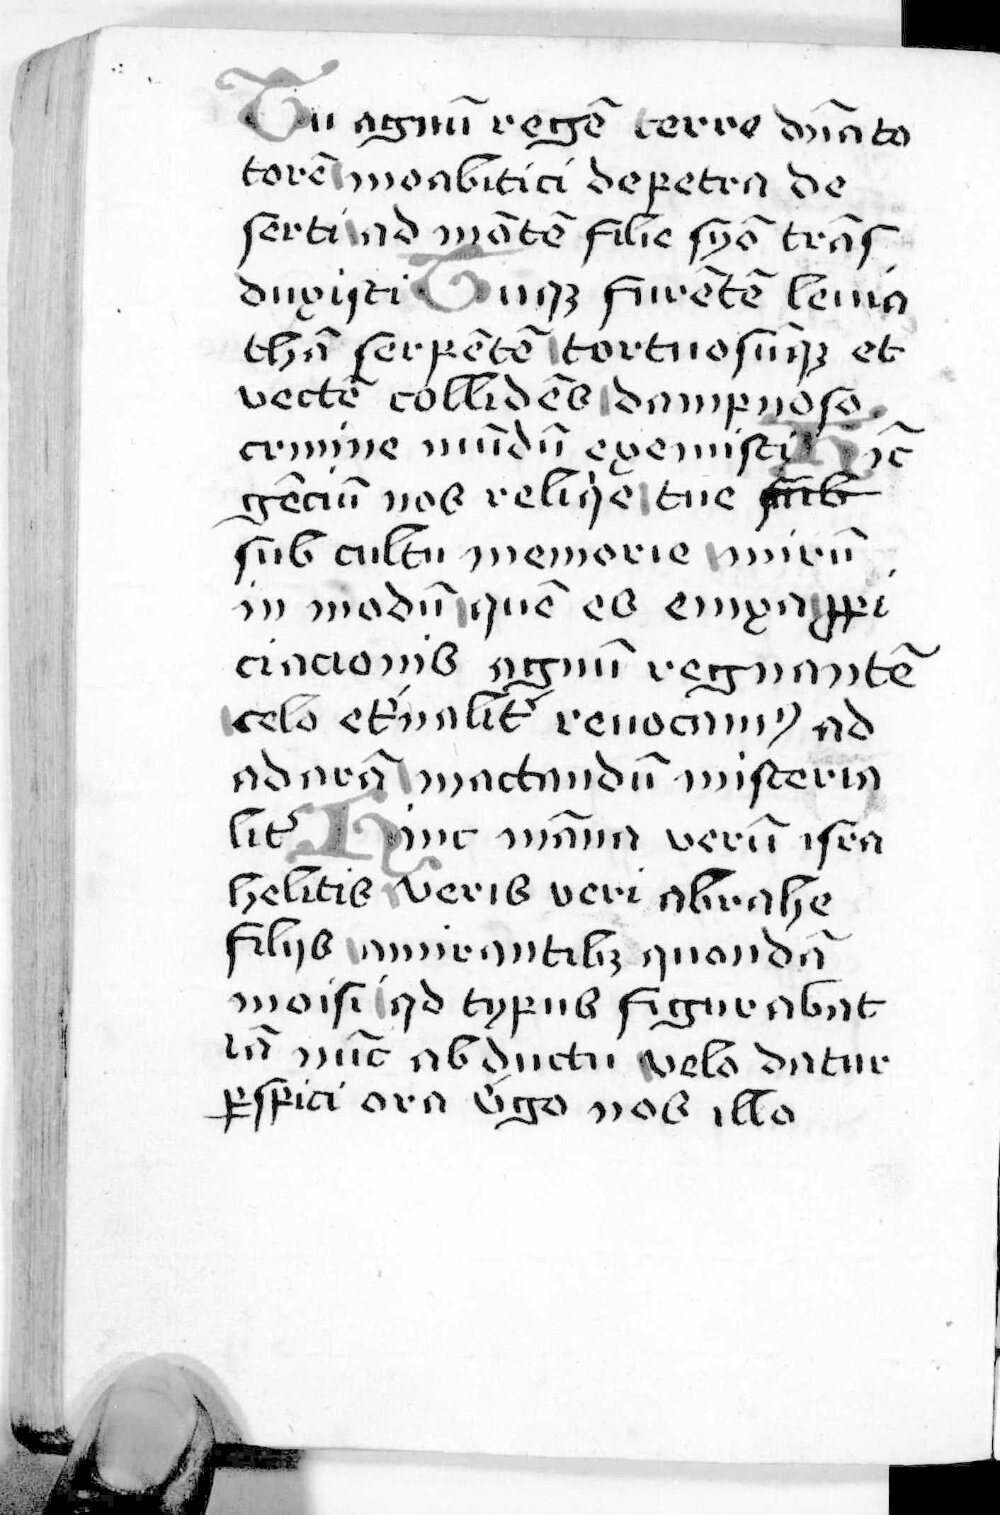 Tu agnū regē terre dnāto
torē moabitici de petra de
serti ad mōtē filie syō trās
duxisti Tuqꝫ furētē leuia
thā serpētē tortuosūqꝫ et
vectē collidēs dampnoso
crimine mūdū exemisti Hīc
gēciū nos reliq̄e tue sub
sub cultu memorie mirū
in modū quē es enixa ꝓpi
ciacionis agnū regnantē
celo et̓nalit̓ reuocamꝰ ad
ad arā mactandū misteria
lit̓ Hinc māna verū isra
helitis veris veri abrahe
filijs amirantibꝫ quondā
moisi qd typus figurabat
iā nūc abductu velo datur
ꝑspici ora v̓go nos illo